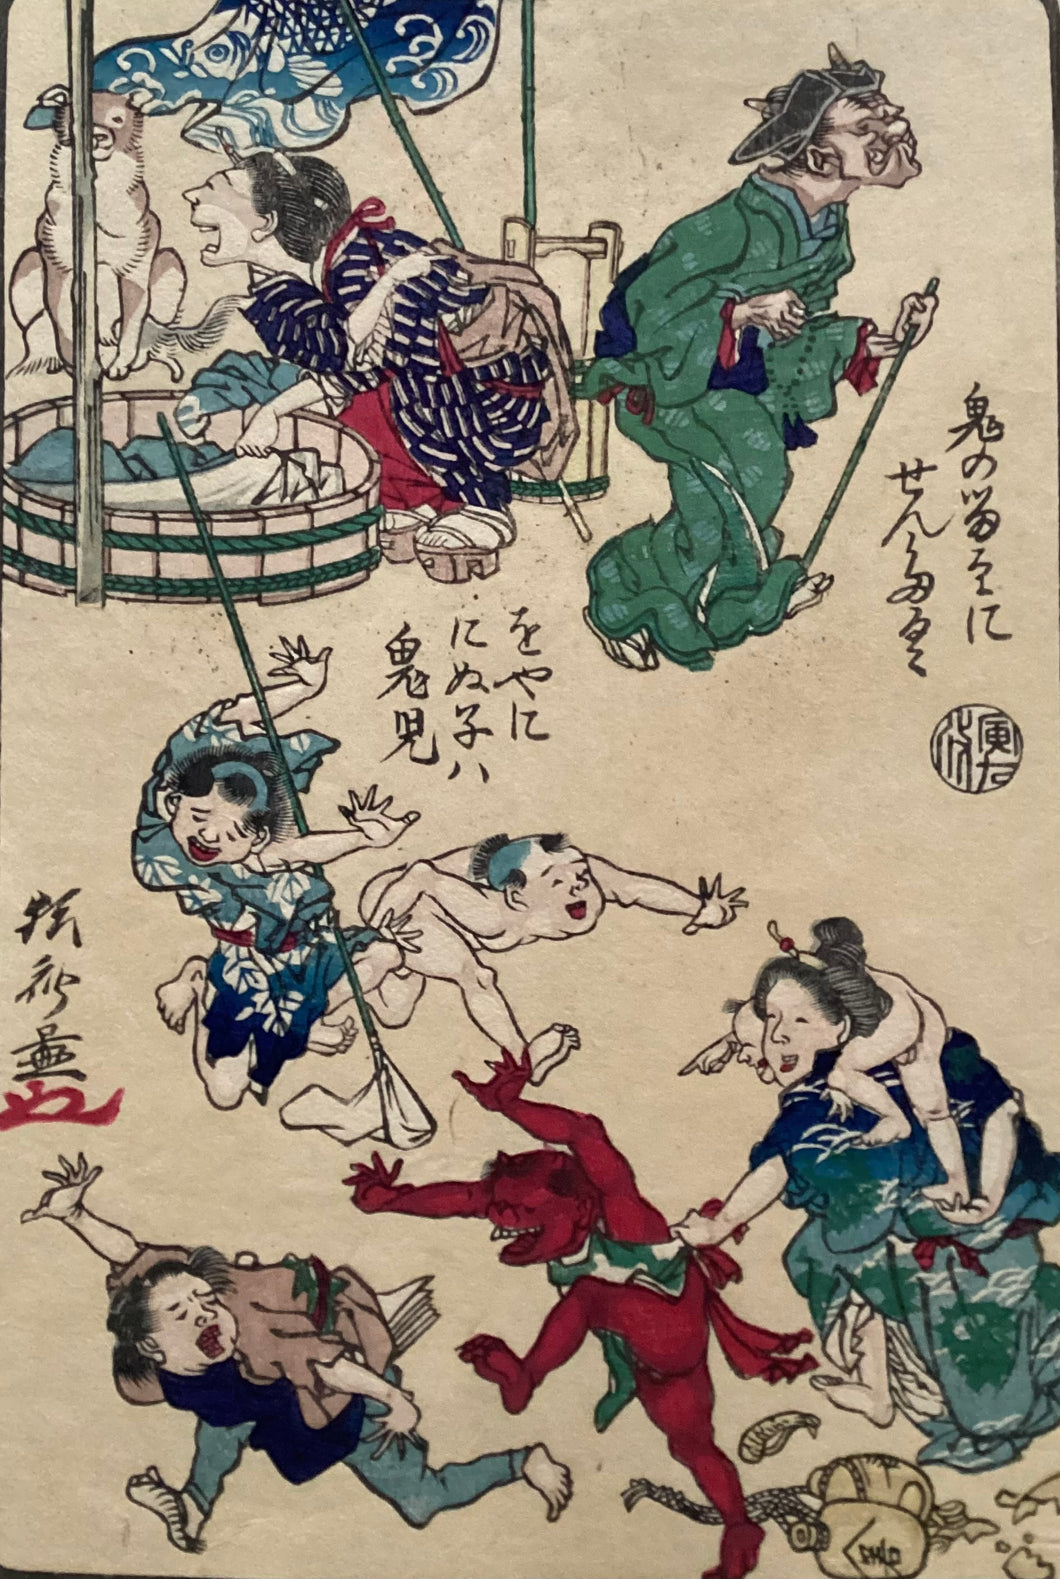 鬼の留主に
せんたく
をやに
にぬ子ハ
鬼児
狂斎画